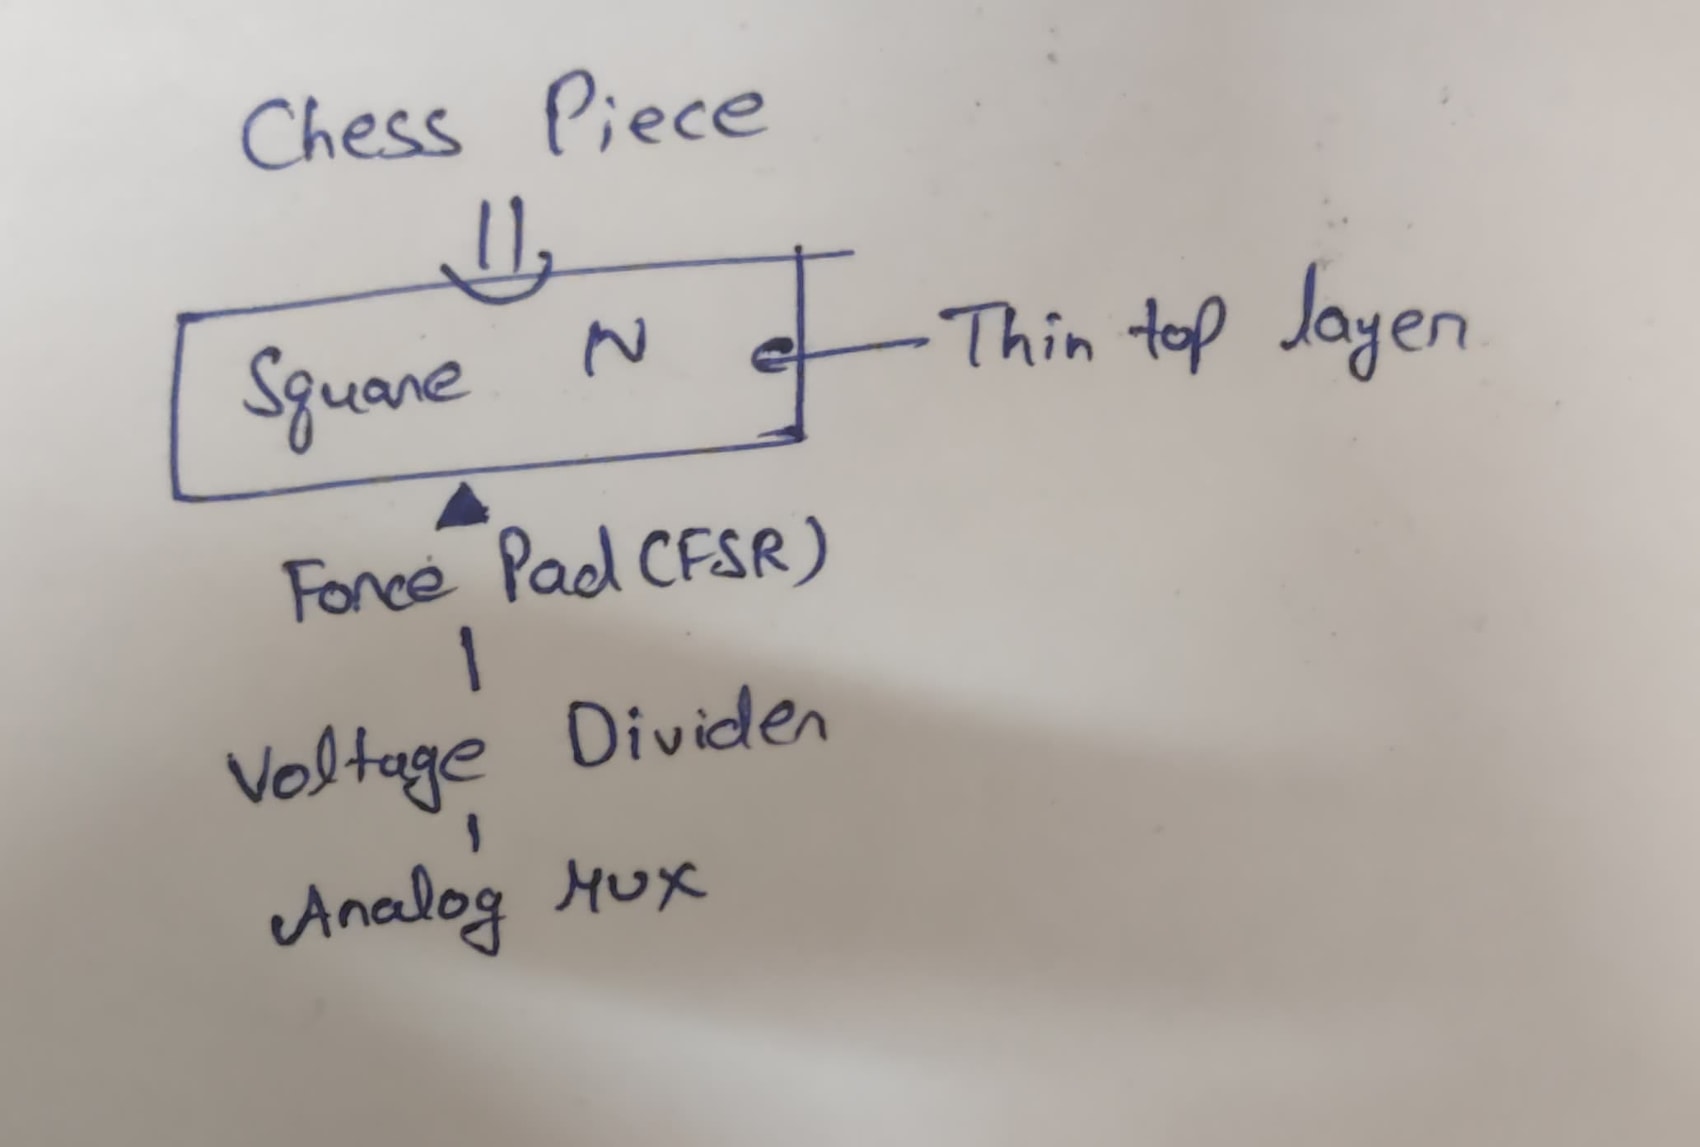 Chess Piece
Square N
Thin top layer
Force Pad (FSR)
Voltage Divider
Analog MUX